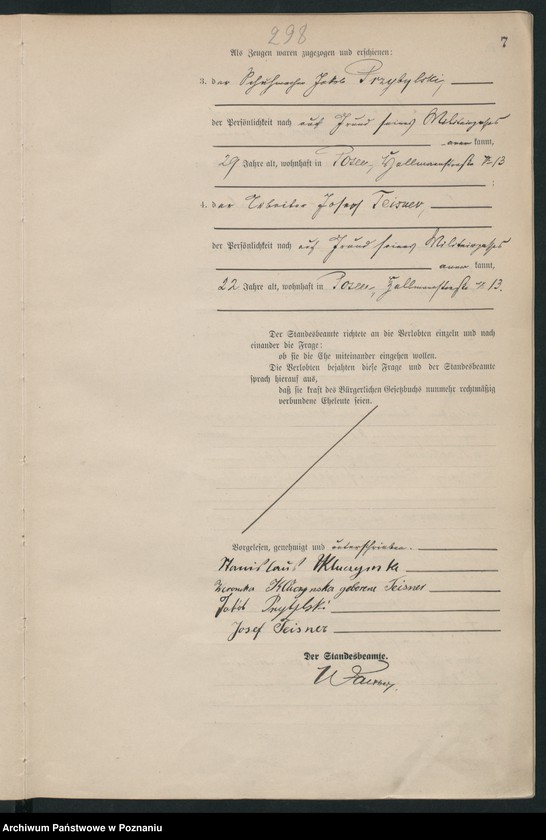 298
7
Als Zeugen waren zugezogen und erschienen:
3. der Schuhmacher Jakob Przybylski,
der Persönlichkeit nach auf Grund seines Militärpasses
kannt,
29 Jahre alt, wohnhaft in Posen, Hallmannstraße № 13
;
4. der Arbeiter Josef Teisner,
der Persönlichkeit nach auf Grund seines Militärpasses
kannt,
22 Jahre alt, wohnhaft in Posen, Hallmannstraße № 13.
Der Standesbeamte richtete an die Verlobten einzeln und nach
einander die Frage:
ob sie die Ehe miteinander eingehen wollen.
Die Verlobten bejahten diese Frage und der Standesbeamte
sprach hierauf aus,
daß sie kraft des Bürgerlichen Gesetzbuchs nunmehr rechtmäßig
verbundene Eheleute seien.
Vorgelesen, genehmigt und unterschrieben.
Stanislaus Kluczynski
Weronika Kluczynska geborene Teisner
Jakob Przybylski
Josef Teisner
Der Standesbeamte.
Archiwum Państwowe w Poznaniu